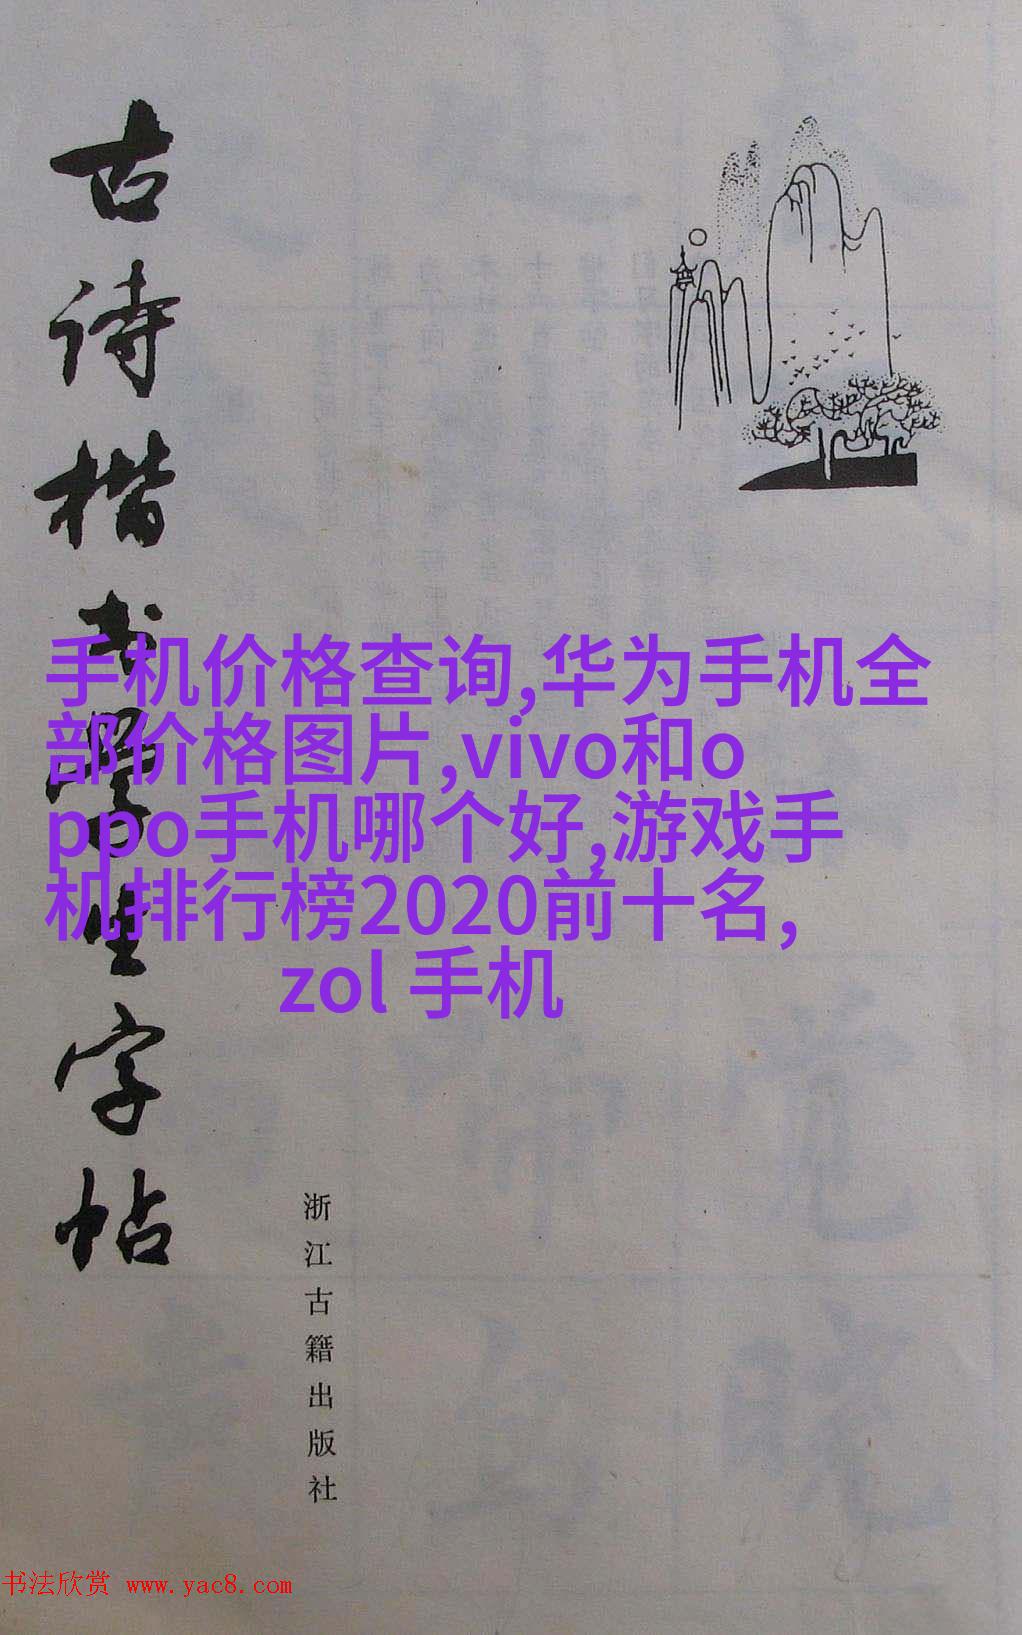 古诗楷书学生字帖
手机价格查询,华为手机全
部价格图片,vivo和o
ppo手机哪个好,游戏手
机排行榜2020前十名,
zol 手机
浙江古籍出版社
书法欣赏 www.yac8.com